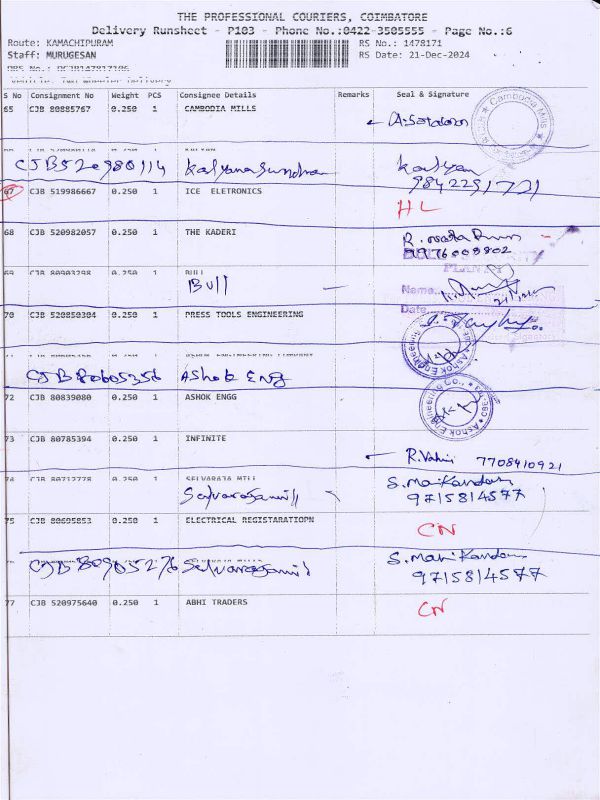 THE PROFESSIONAL COURIERS, COIMBATORE
Delivery Runsheet - P103 - Phone No.:0422-3505555 - Page No.:6
Route: KAMACHIPURAM RS No.: 1478171
Staff: MURUGESAN RS Date: 21-Dec-2024
S No Consignment No Weight PCS Consignee Details Remarks Seal & Signature
65 CJB 80885767 0.250 1 CAMBODIA MILLS
CJB520980114 Kalyanasundram Kalyan
9842291721
67 CJB 519986667 0.250 1 ICE ELETRONICS
HL
68 CJB 520982057 0.250 1 THE KADERI
9976009802
69 CJB 80903298 0.250 1 BULL
Bull
Name
Date
70 CJB 520850304 0.250 1 PRESS TOOLS ENGINEERING
CJB 80605356 Ashok Eng
72 CJB 80839080 0.250 1 ASHOK ENGG
73 CJB 80785394 0.250 1 INFINITE
R.Vahini 7708410921
74 CJB 80712778 0.250 1 SELVARAJA MILL
Selvarajamill S. Manikandan
9715814577
75 CJB 80695853 0.250 1 ELECTRICAL REGISTARATIOPN
CN
CJB 80905276 Selvarajamil S. Manikandan
9715814577
77 CJB 520975640 0.250 1 ABHI TRADERS
CN